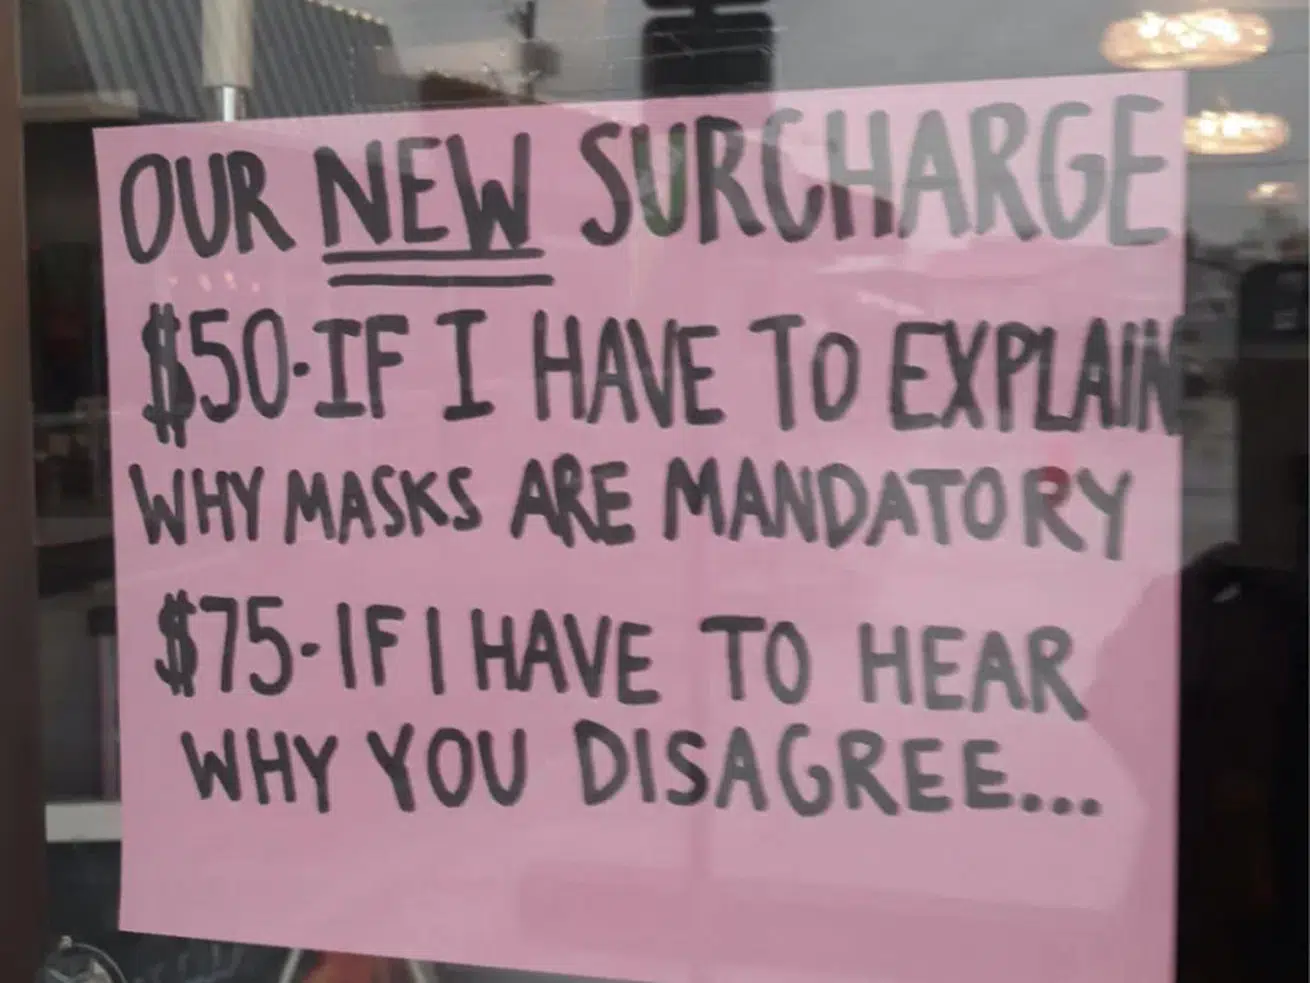 OUR NEW SURCHARGE
$50·IF I HAVE TO EXPLAIN
WHY MASKS ARE MANDATORY
$75·IF I HAVE TO HEAR
WHY YOU DISAGREE...